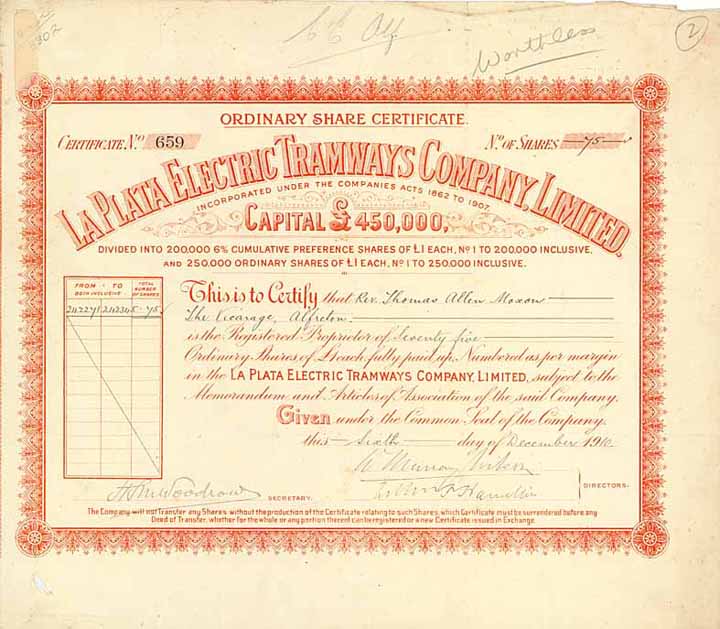 302
C.C. Alf.
Worthless
2
ORDINARY SHARE CERTIFICATE.
CERTIFICATE No. 659
No. OF SHARES 75
LA PLATA ELECTRIC TRAMWAYS COMPANY, LIMITED,
INCORPORATED UNDER THE COMPANIES ACTS 1862 TO 1907.
CAPITAL £450,000,
DIVIDED INTO 200,000 6% CUMULATIVE PREFERENCE SHARES OF £1 EACH, No 1 TO 200,000 INCLUSIVE,
AND 250,000 ORDINARY SHARES OF £1 EACH, No 1 TO 250,000 INCLUSIVE.
FROM TO BOTH INCLUSIVE
TOTAL NUMBER OF SHARES
242271 242345 75
This is to Certify that Rev. Thomas Allen Moxon
The Vicarage, Alfreton
is the Registered Proprietor of Seventy five
Ordinary Shares of £1 each, fully paid up, Numbered as per margin
in the LA PLATA ELECTRIC TRAMWAYS COMPANY, LIMITED, subject to the
Memorandum and Articles of Association of the said Company.
Given under the Common Seal of the Company,
this Sixth day of December 1910
DIRECTORS.
Woodrow
SECRETARY.
The Company will not Transfer any Shares without the production of the Certificate relating to such Shares, which Certificate must be surrendered before any
Deed of Transfer, whether for the whole or any portion thereof can be registered or a new Certificate issued in Exchange.